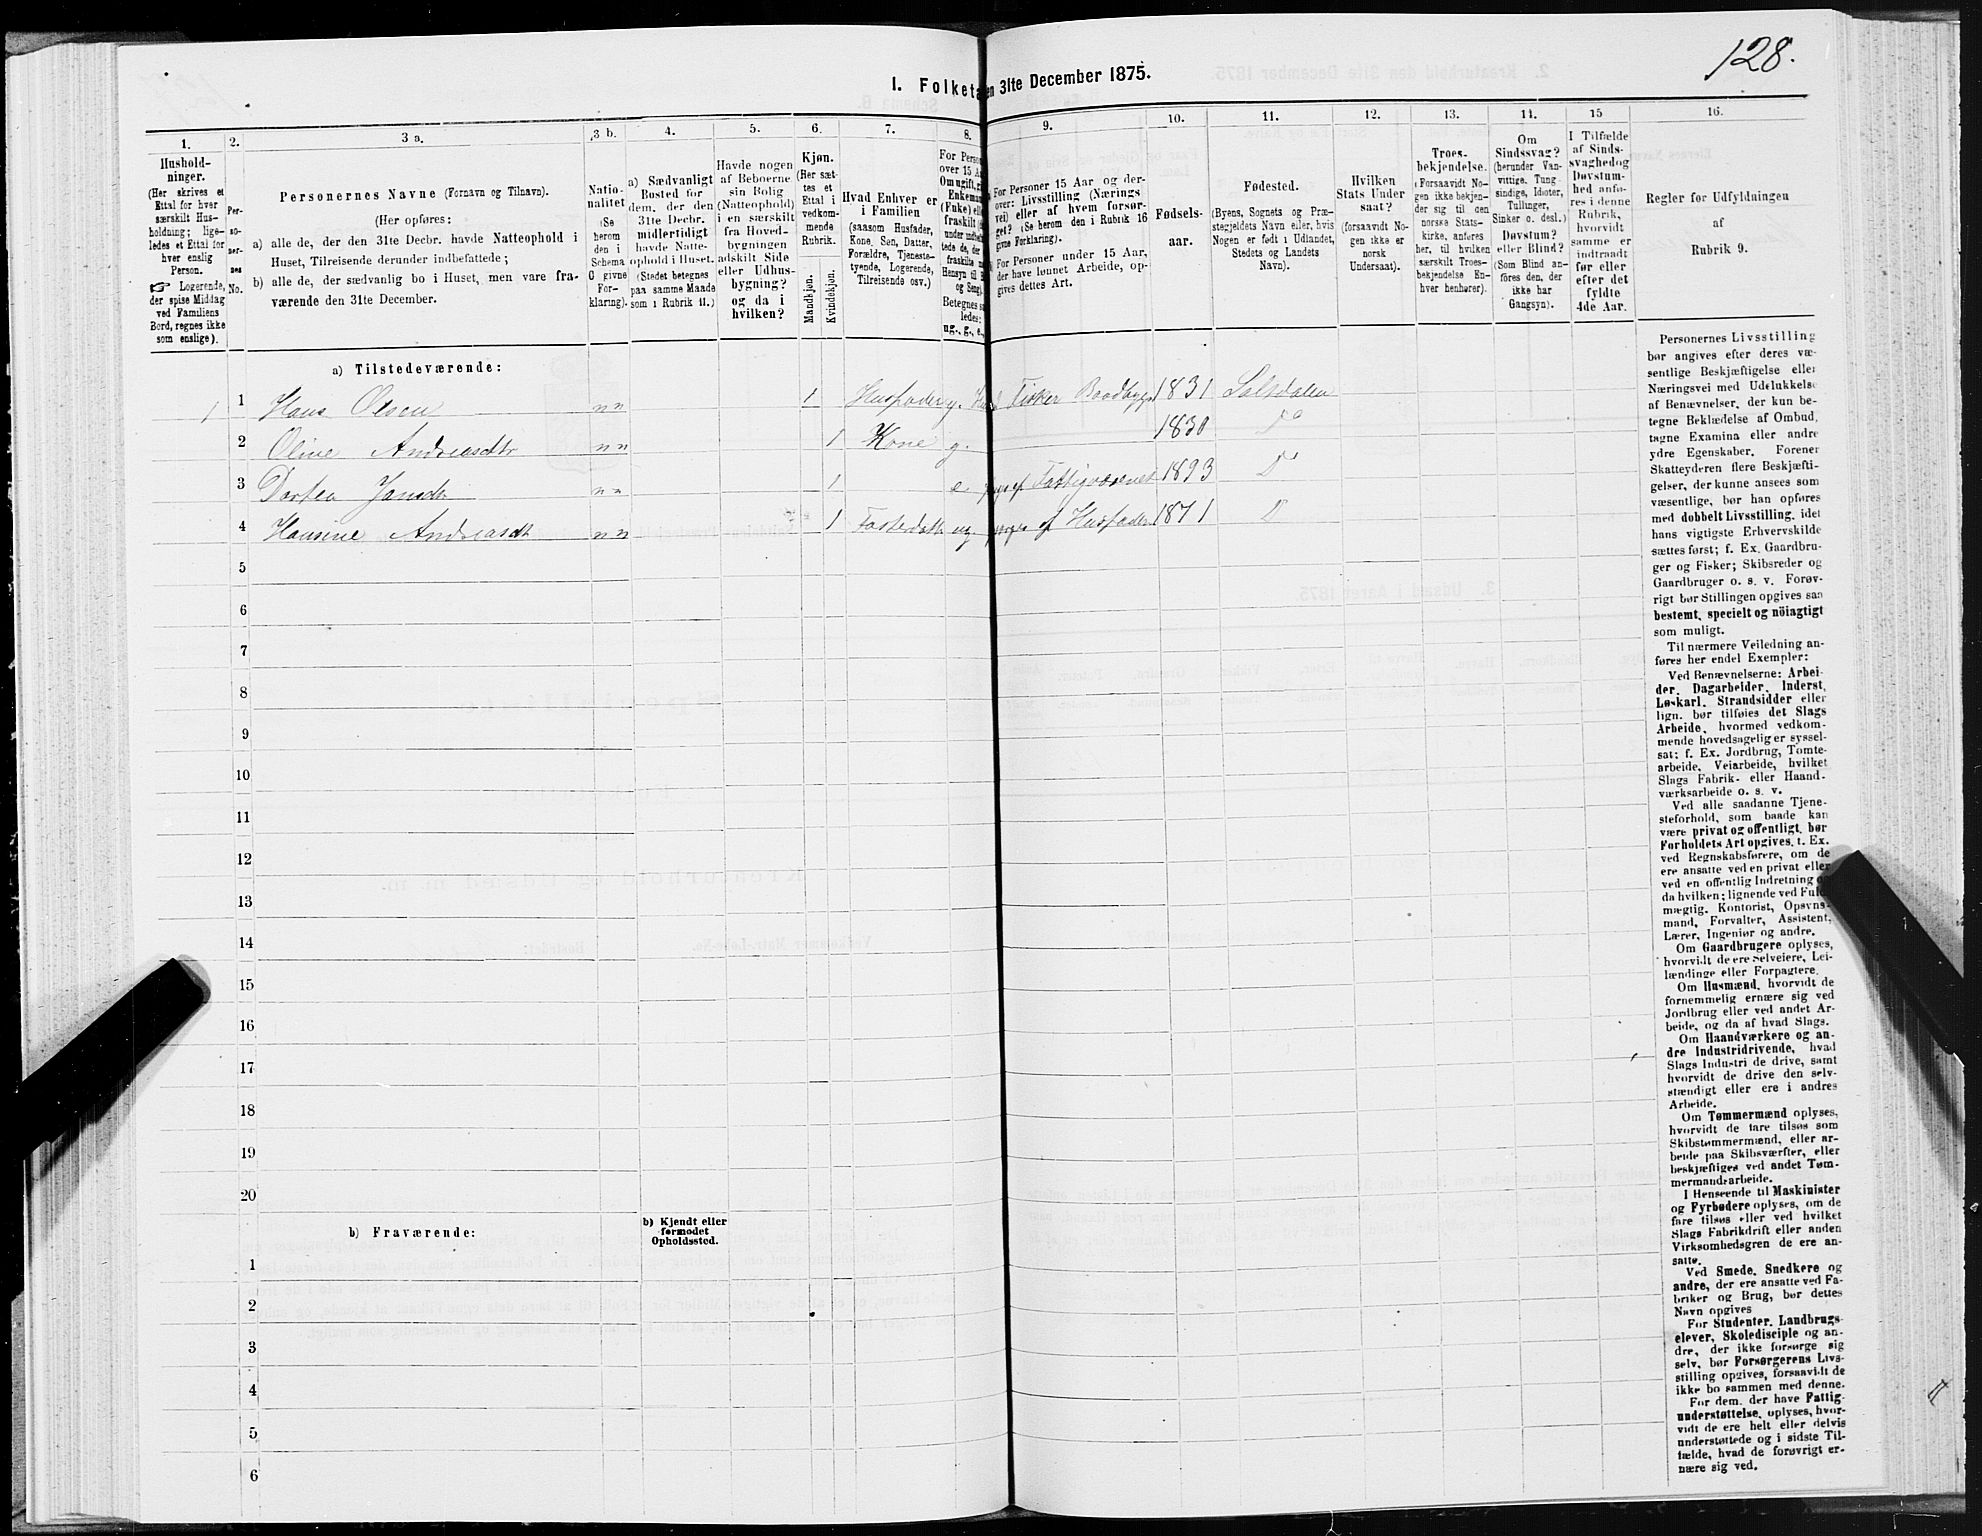 128.
I. Folketa en 31te December 1875.
1.
2.
3 a.
3 b.
4.
5.
6.
7.
8.
9.
10.
11.
12.
13.
14.
15
16.
Hushold-
ninger.
(Her skrives et
Ettal for hver
særskilt Hus-
holdning; lige-
ledes et Ettal for
hver enslig
Person.
☞ Logerende,
der spise Middag
ved Familiens
Bord, regnes ikke
som enslige).
Per-
so-
ner-
nes
No.
Personernes Navne (Fornavn og Tilnavn).
(Her opføres:
a) alle de, der den 31te Decbr. havde Natteophold i
Huset, Tilreisende derunder indbefattede;
b) alle de, der sædvanlig bo i Huset, men vare fra-
værende den 31te December.
Natio-
nalitet
(Se
herom
den i
Schema
G givne
For-
klaring).
a) Sædvanligt
Bosted for
dem, der den
31te Decbr.
midlertidigt
havde Natte-
ophold i Huset.
(Stedet betegnes
paa samme Maade
som i Rubrik 11.)
Havde nogen
af Beboerne
sin Bolig
(Natteophold)
i en særskilt
fra Hoved-
bygningen
adskilt Side
eller Udhus-
bygning?
og da i
hvilken?
Kjøn.
(Her sæt-
tes et
Ettal i
vedkom-
mende
Rubrik.
Mandkjøn.
Kvindekjøn.
Hvad Enhver er
i Familien
(saasom Husfader,
Kone, Søn, Datter,
Forældre, Tjeneste-
tyende, Logerende,
Tilreisende osv.)
For Perso
over 15 A
Om ugift, gi
Enkeman
(Enke) ell
fraskilt (
under indbef
tede de, der
fraskilte m
Hensyn til B
og Seng).
Betegnes s
ledes:
ug., g., e.,
For Personer 15 Aar og der-
over: Livsstilling (Nærings
vei) eller af hvem forsør-
get? (Se herom den i Rubrik 16
givne Forklaring).
For Personer under 15 Aar,
der have lønnet Arbeide, op-
gives dettes Art.
Fødsels-
aar.
Fødested.
(Byens, Sognets og Præ-
stegjeldets Navn eller, hvis
Nogen er født i Udlandet,
Stedets og Landets
Navn).
Hvilken
Stats Under
saat?
(forsaavidt No-
gen ikke er
norsk
Undersaat).
Troes-
bekjendelse.
(Forsaavidt No-
gen ikke bekjen-
der sig til den
norske Stats-
kirke, anføres
her, til hvilken
særskilt Troes-
bekjendelse En-
hver henhører).
Om
Sindssvag?
(herunder Van-
vittige, Tung-
sindige, Idioter,
Tullinger,
Sinker o. desl.)
Døvstum?
eller Blind?
(Som Blind an-
føres den, der
ikke har
Gangsyn).
I Tilfælde
af Sinds-
svaghedog
Døvstum-
hed anfø-
res i denne
Rubrik,
hvorvidt
samme er
indtraadt
før eller
efter det
fyldte
4de Aar.
Regler for Udfyldningen
af
Rubrik 9.
a) Tilstedeværende:
1 1 Hans Olsen nn 1 Husfader g. Fisker 1831 Saltdalen
2 Oline Andreasdtr nn 1 Kone g. 1830 Do
3 Dortea Jansdtr nn 1 e Fattigvæsenet 1893 D
4 Hansine Andreasdtr nn 1 Fosterdatter ug. af Husfader 1871 D
5
6
7
8
9
10
11
12
13
14
15
16
17
18
19
20
b) Fraværende:
b) Kjendt eller
formodet
Opholdssted.
1
2
3
4
5
6
Personernes Livsstilling
bør angives efter deres væ-
sentlige Beskjæftigelse eller
Næringsvei med Udelukkelse
af Benævnelser, der kun be-
tegne Beklædelse af Ombud,
tagne Examina eller andre
ydre Egenskaber. Forener
Skatteyderen flere Beskjæfti-
gelser, der kunne ansees som
væsentlige, bør han opføres
med dobbelt Livsstilling, idet
hans vigtigste Erhvervskilde
sættes først; f. Ex. Gaardbru-
ger og Fisker; Skibsreder og
Gaardbruger o. s. v. Forøv-
rigt bør Stillingen opgives saa
bestemt, specielt og nöiagtigt
som muligt.
Til nærmere Veiledning an-
føres her endel Exempler:
Ved Benævnelserne: Arbei-
der, Dagarbeider, Inderst,
Løskarl, Strandsidder eller
lign. bør tilføies det Slags
Arbeide, hvormed vedkom-
mende hovedsagelig er syssel-
sat; f. Ex. Jordbrug, Tomte-
arbeide, Veiarbeide, hvilket
Slags Fabrik- eller Haand-
værksarbeide o. s. v.
Ved alle saadanne Tjene-
steforhold, som baade kan
være privat og offentligt, bør
Forholdets Art opgives, t. Ex.
ved Regnskabsførere, om de
ere ansatte ved en privat eller
ved en offentlig Indretning og
da hvilken; lignende ved Fuld-
mægtig, Kontorist, Opsyns-
mand, Forvalter, Assistent,
Lærer, Ingeniør og andre.
Om Gaardbrugere oplyses,
hvorvidt de ere Selveiere, Lei-
lændinge eller Forpagtere.
Om Husmænd, hvorvidt de
fornemmelig ernære sig ved
Jordbrug eller ved andet Ar-
beide, og da af hvad Slags.
Om Haandværkere og an-
dre Industridrivende, hvad
Slags Industri de drive, samt
hvorvidt de drive den selv-
stændigt eller ere i andres
Arbeide.
Om Tømmermænd oplyses,
hvorvidt de fare tilsøs som
Skibstømmermænd, eller ar-
beide paa Skibsværfter, eller
beskjæftiges ved andet Tøm-
mermandsarbeide.
I Henseende til Maskinister
og Fyrbødere oplyses, om de
fare tilsøs eller ved hvilket
Slags Fabrikdrift eller anden
Virksomhedsgren de ere an-
satte.
Ved Smede, Snedkere og
andre, der ere ansatte ved Fa-
briker og Brug, bør dettes
Navn opgives
For Studenter, Landbrugs-
elever, Skoledisciple og an-
dre, der ikke forsørge sig
selv, bør Forsørgerens Livs-
stilling opgives, forsaavidt de
ikke bo sammen med denne.
For dem, der have Fattig-
understøttelse, oplyses, hvor-
vidt de ere helt eller delvis
understøttede og i sidste Til-
fælde, hvad de forøvrigt er-
nære sig ved.